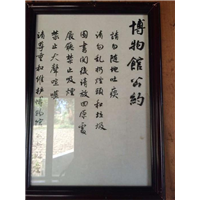 博物館公約
請勿隨地吐痰
請勿亂扔煙頭和垃圾
圖書閱後請放回原處
展廳禁止吸煙
禁止大聲喧嘩
請尊重和維護博物館